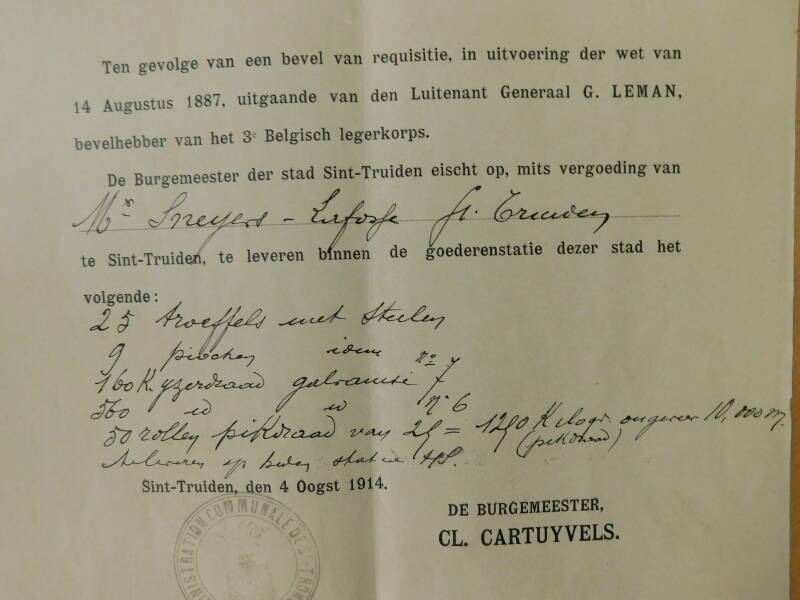 Ten gevolge van een bevel van requisitie, in uitvoering der wet van
14 Augustus 1887, uitgaande van den Luitenant Generaal G. LEMAN,
bevelhebber van het 3e Belgisch legerkorps.
De Burgemeester der stad Sint-Truiden eischt op, mits vergoeding van
Mr Sneyers - Lafosse St. Truiden
te Sint-Truiden, te leveren binnen de goederenstatie dezer stad het
volgende:
25 troeffels met Steelen
9 piochen idem
160 K. yzerdraad galvanisé no 7
560 id id no 6
50 rollen pikdraad van 25 = 1250 Kilogr. ongeveer 10,000 m.
(pikdraad)
te leveren op heden statie
Sint-Truiden, den 4 Oogst 1914.
DE BURGEMEESTER,
CL. CARTUYVELS.
ADMINISTRATION COMMUNALE DE ST-TRON